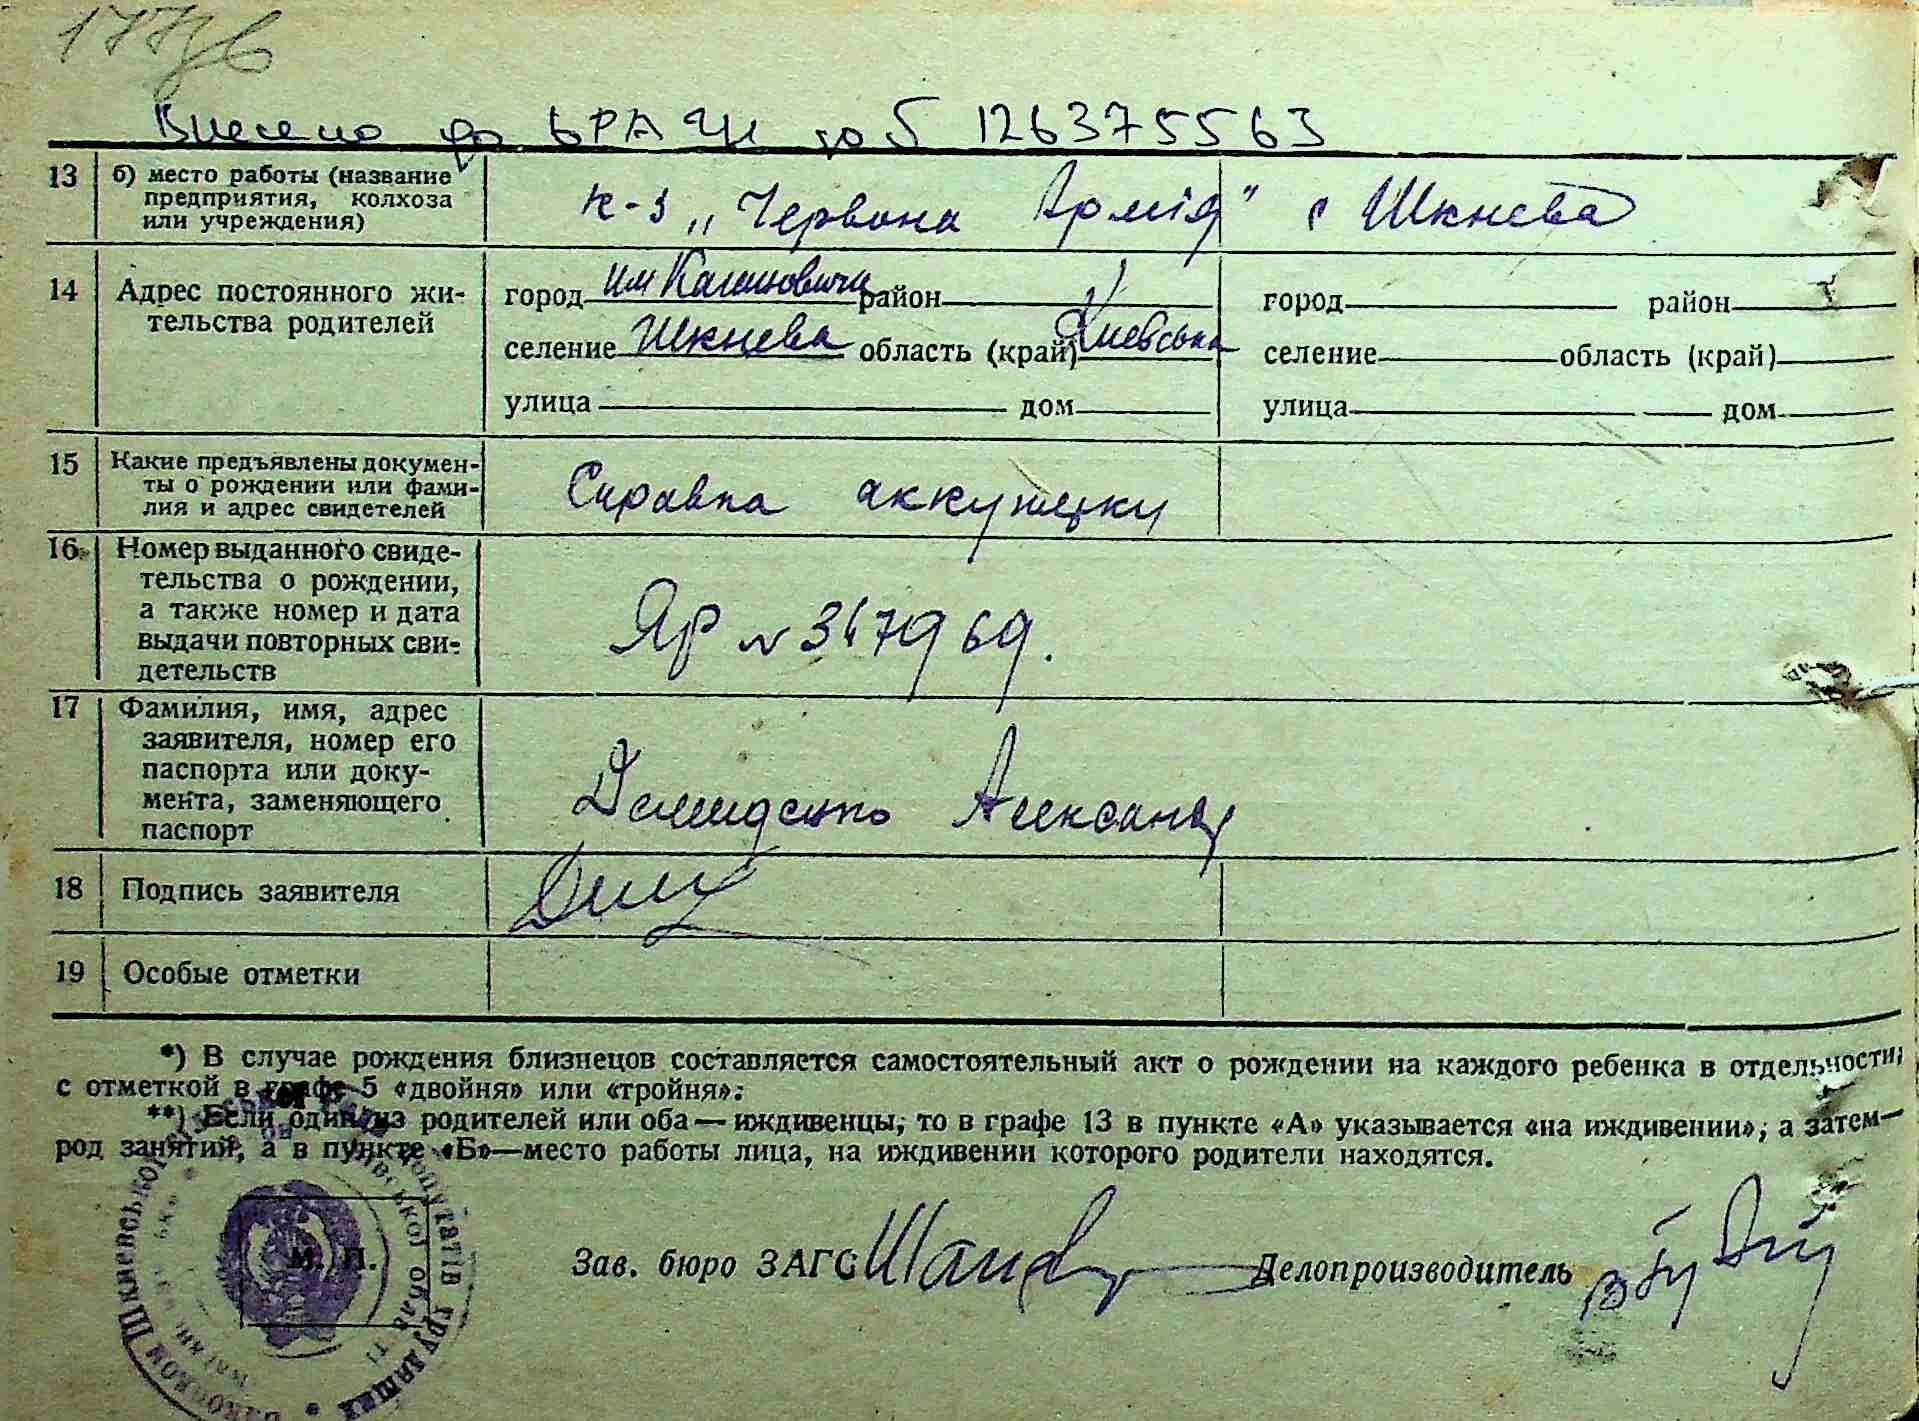 177зв
Внесено до ДРАЦС за № 126375563
13 б) место работы (название предприятия, колхоза или учреждения)
к-з „Червона Армія" с Шкнева
14 Адрес постоянного жительства родителей
город им Кагановича район город район
селение Шкнева область (край) Киевська селение область (край)
улица дом улица дом
15 Какие предъявлены документы о рождении или фамилия и адрес свидетелей
Справка аккушерки
16 Номер выданного свидетельства о рождении, а также номер и дата выдачи повторных свидетельств
ЯР № 347969.
17 Фамилия, имя, адрес заявителя, номер его паспорта или документа, заменяющего паспорт
Демиденко Александр
18 Подпись заявителя
19 Особые отметки
*) В случае рождения близнецов составляется самостоятельный акт о рождении на каждого ребенка в отдельности,
с отметкой в графе 5 «двойня» или «тройня»:
**) Если один из родителей или оба — иждивенцы, то в графе 13 в пункте «А» указывается «на иждивении», а затем—
род занятий, а в пункте «Б»—место работы лица, на иждивении которого родители находятся.
М. П. Зав. бюро ЗАГС Делопроизводитель